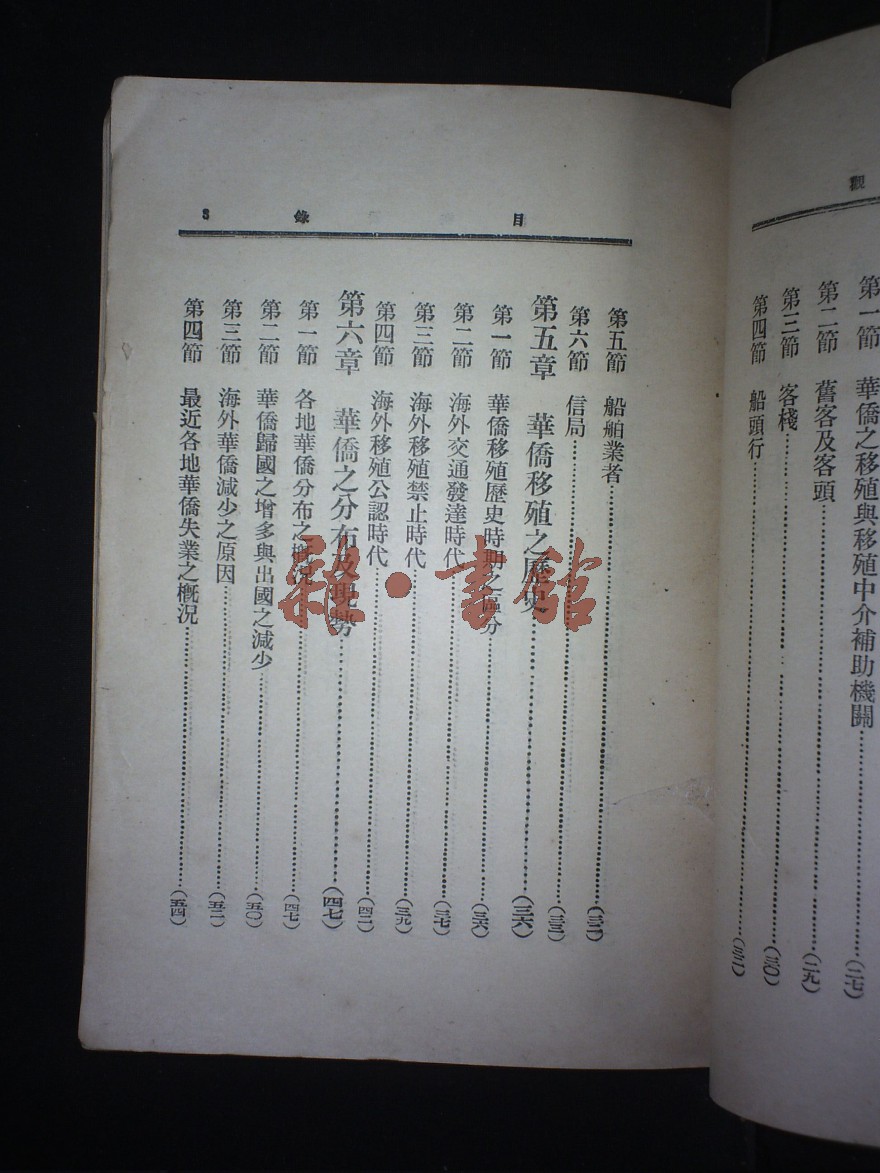 觀
第一節 華僑之移殖與移殖中介補助機關……(二七)
第二節 舊客及客頭……(二九)
第三節 客棧……(三〇)
第四節 船頭行……(三一)
目錄 3
第五節 船舶業者……(三二)
第六節 信局……(三三)
第五章 華僑移殖之歷史……(三六)
第一節 華僑移殖歷史時期之區分……(三六)
第二節 海外交通發達時代……(三七)
第三節 海外移殖禁止時代……(三九)
第四節 海外移殖公認時代……(四二)
第六章 華僑之分布及現勢……(四七)
第一節 各地華僑分布之概況……(四七)
第二節 華僑歸國之增多與出國之減少……(五〇)
第三節 海外華僑減少之原因……(五二)
第四節 最近各地華僑失業之概況……(五四)
雜·書館